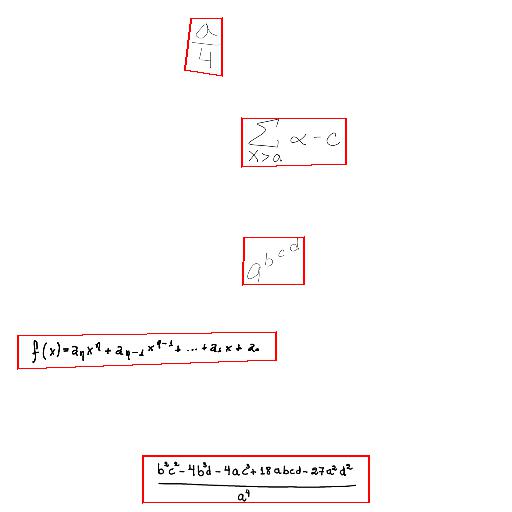 \frac{a}{4}
\sum_{x>a} \alpha - c
a^{b^{c^{d}}}
f(x) = a_n x^n + a_{n-1} x^{n-1} + ... + a_1 x + a_0
\frac{b^2c^2 - 4b^3d - 4ac^3 + 18abcd - 27a^2d^2}{a^4}